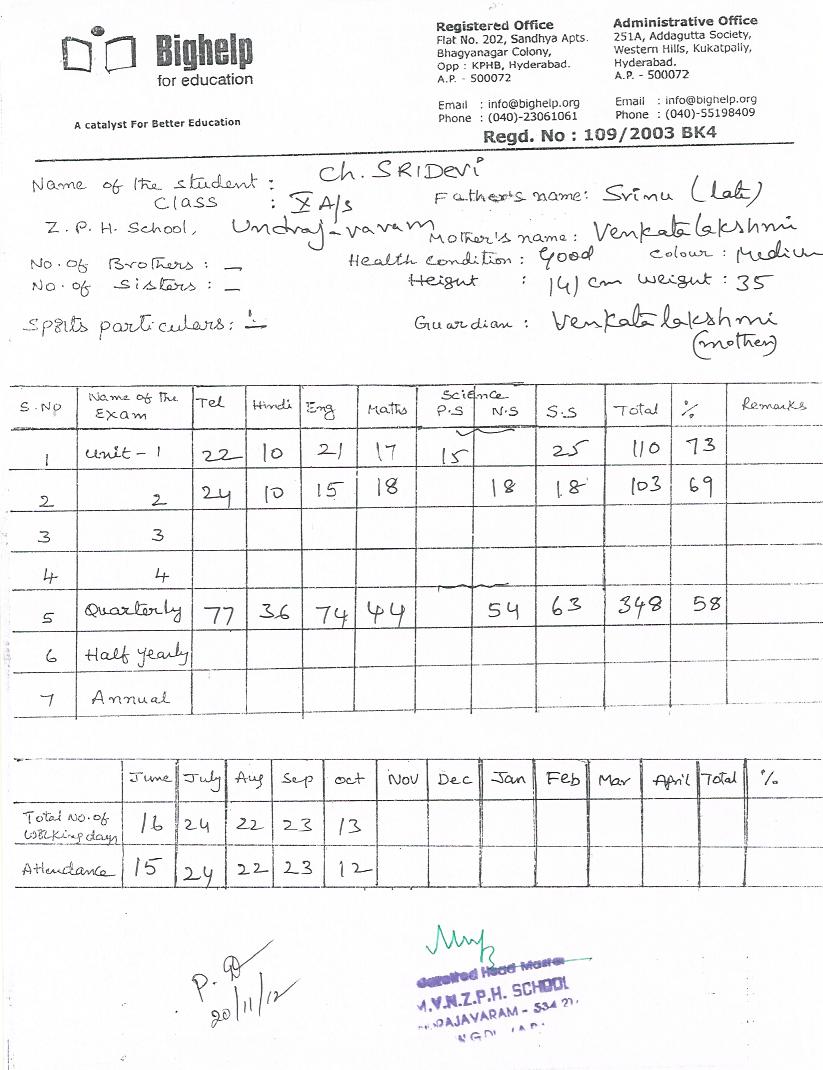 Bighelp
for education
A catalyst For Better Education
Registered Office
Flat No. 202, Sandhya Apts.
Bhagyanagar Colony,
Opp : KPHB, Hyderabad.
A.P. - 500072
Email : info@bighelp.org
Phone : (040)-23061061
Administrative Office
251A, Addagutta Society,
Western Hills, Kukatpally,
Hyderabad.
A.P. - 500072
Email : info@bighelp.org
Phone : (040)-55198409
Regd. No : 109/2003 BK4
Name of the student : Ch. SRIDevi
Class : X A/s Father's name: Srinu (late)
Z.P.H. School, Undrajavaram Mother's name: Venkata lakshmi
No. of Brothers : - Health condition : Good Colour : Medium
No. of Sisters : - Height : 141 cm weight : 35
Sports particulars : - Guardian : Venkata lakshmi
(mother)
S.No Name of the Exam Tel Hindi Eng Maths Science P.S N.S S.S Total % Remarks
1 Unit - 1 22 10 21 17 15 25 110 73
2 2 24 10 15 18 18 18 103 69
3 3
4 4
5 Quarterly 77 36 74 44 54 63 348 58
6 Half yearly
7 Annual
June July Aug Sep Oct Nov Dec Jan Feb Mar April Total %
Total No. of working days 16 24 22 23 13
Attendance 15 24 22 23 12
20/11/12
Gazetted Head Master
M.V.N.Z.P.H. SCHOOL
RAJAVARAM - 534 21